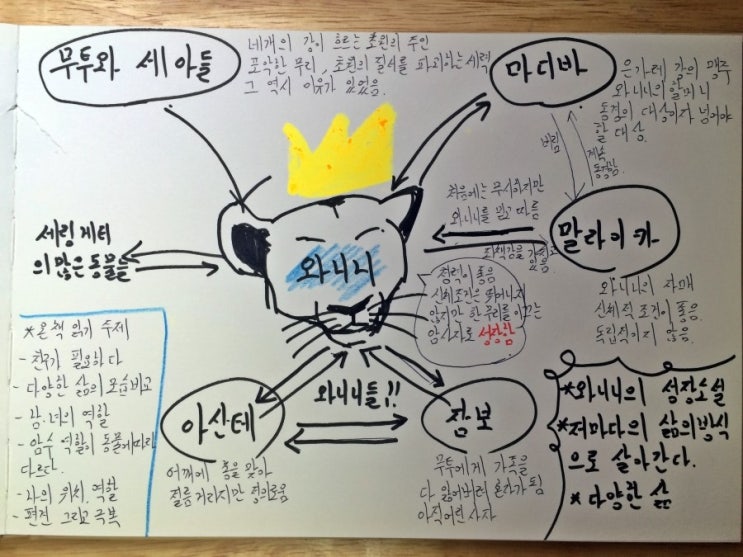 무투와 세 아들
네개의 강이 흐르는 초원의 주인
포악한 무리, 초원의 질서를 파괴하는 세력
그 역시 이유가 있었음.
마디바
은가레 강의 맹주
와니니의 할머니
동경의 대상이자 넘어야
할 대상.
버림
계속
동경함.
처음에는 무시하지만
와니니를 믿고 따름
죄책감을 가지고
있음
말라이카
와니니의 자매
신체적 조건이 좋음.
독립적이지 않음.
세링게티
의 많은 동물들
와니니
청력이 좋음
신체조건은 뛰어나지
않지만 한 무리를 이끄는
암사자로 성장함
*온 책 읽기 주제
- 친구가 필요하다
- 다양한 삶의 모습 비교
- 남.녀의 역할
- 암수 역할이 동물에 따라
다르다.
- 나의 위치, 역할
- 편견 그리고 극복
아산테
어깨에 총을 맞아
절름거리지만 정의로움
와니니들?!
잠보
무투에게 가족을
다 잃어버려 혼자가 됨
아직 어린 사자
*와니니의 성장소설
*저마다의 삶의 방식
으로 살아간다.
*다양한 삶